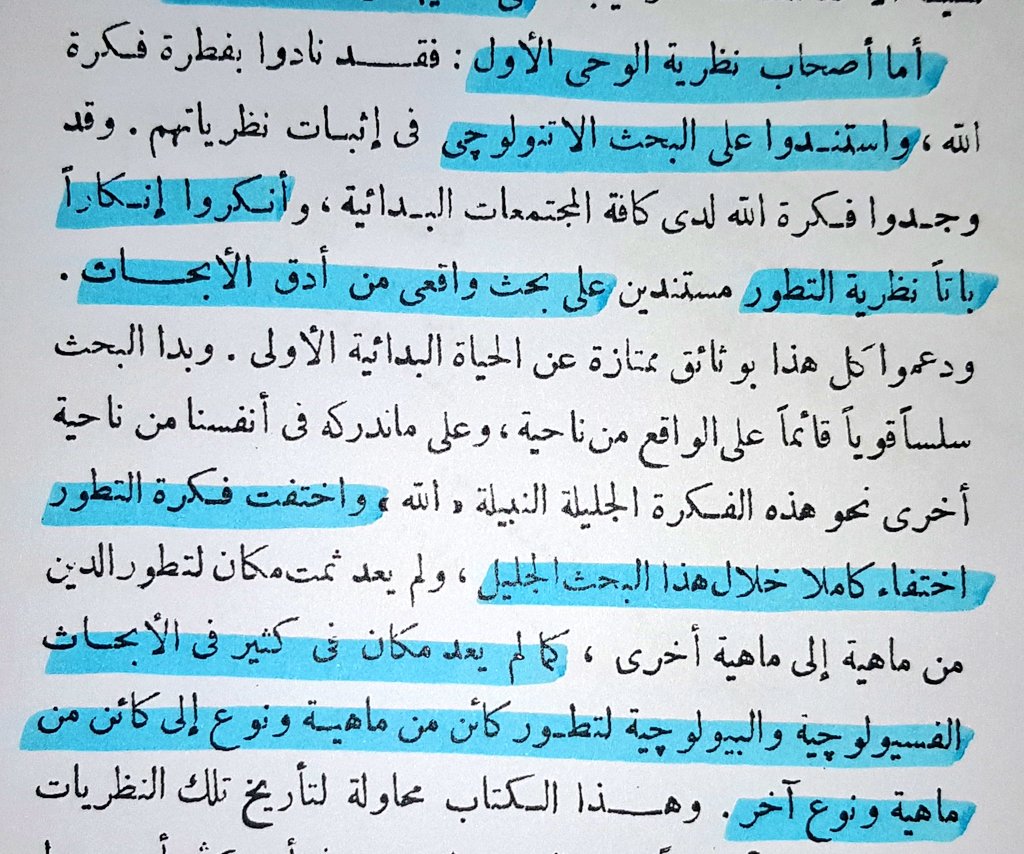 أما أصحاب نظرية الوحى الأول : فقـــد نادوا بفطرة فـكرة
الله ، واستنـدوا على البحث الاتنولوچى فى إثبـات نظرياتهم . وقد
وجـدوا فـكرة الله لدى كافة المجتمعات البـدائية ، وأنـكروا إنـكاراً
باتاً نظرية التطور مستندين على بحث واقعى من أدق الأبحـــاث .
ودعموا كل هذا بوثائق ممتازة عن الحياة البدائية الأولى . وبدا البحث
سلساً قوياً قائماً على الواقع من ناحية ، وعلى ماندركه فى أنفسنا من ناحية
أخرى نحو هذه الفـكرة الجليلة النبيلة « الله » واختفت فـكرة التطور
اختفاء كاملا خلال هذا البحث الجليل ، ولم يعد ثمت مكان لتطور الدين
من ماهية إلى ماهية أخرى ، كما لم يعد مكان فى كثير فى الأبحـاث
الفسيولوچية والبيولوچية لتطـور كائن من ماهيـة ونوع إلى كائن من
ماهية ونوع آخر . وهـــذا الـكتاب محاولة لتأريخ تلك النظريات